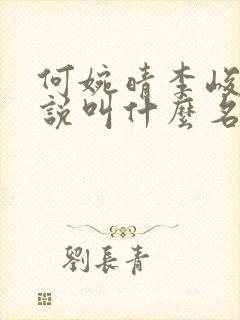 何婉晴李峻
說叫什麼名
劉長青